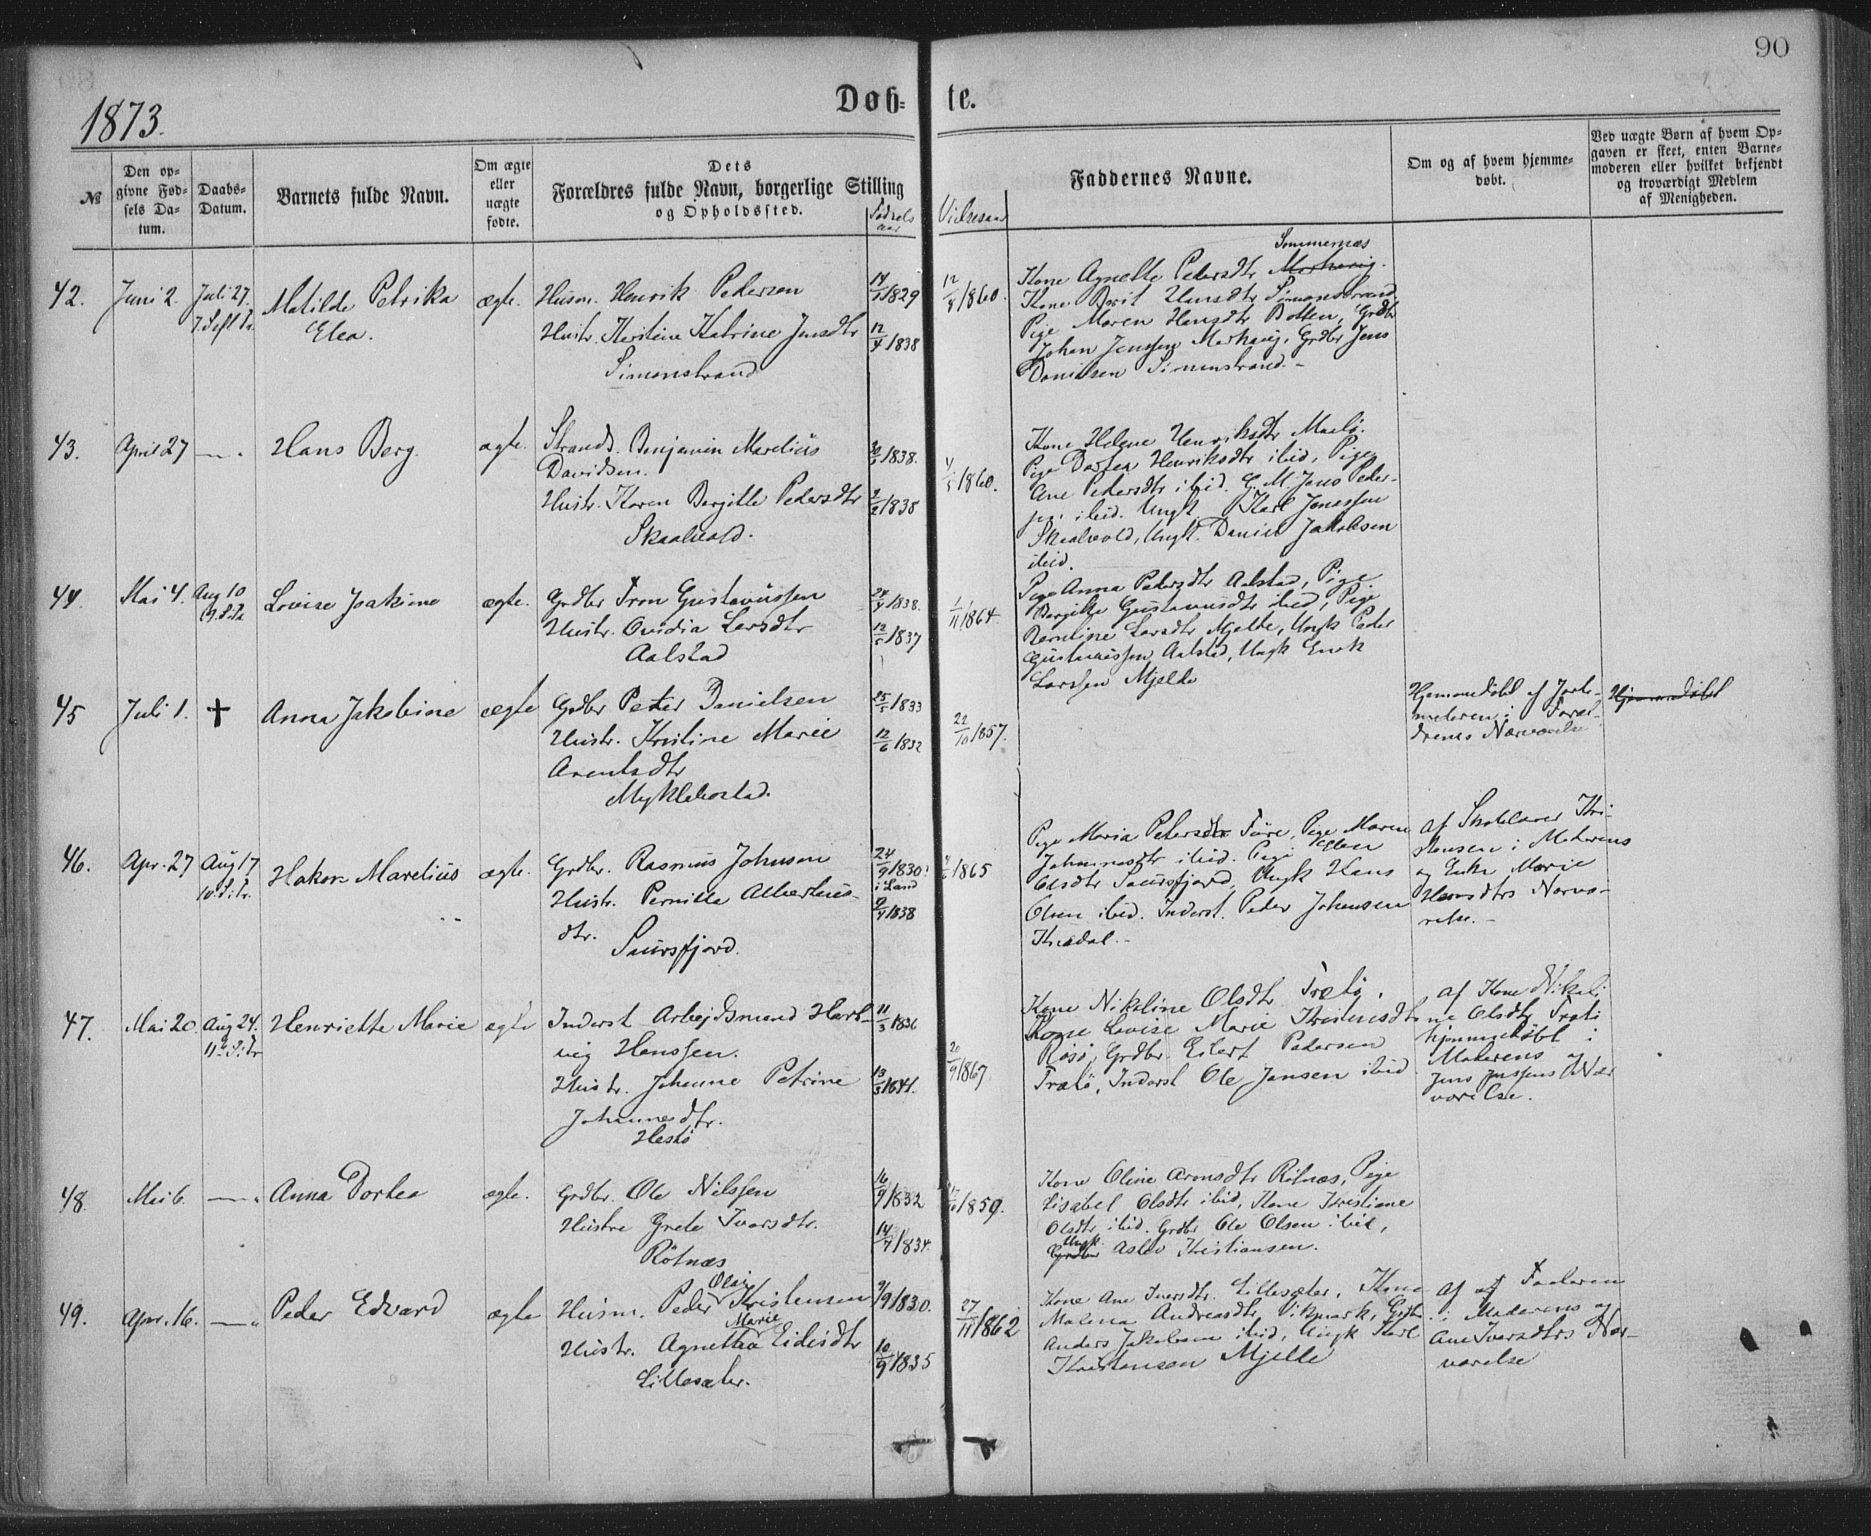 90
1873.
Døb- te.
№
Den opgivne Fødsels Datum.
Daabs-Datum.
Barnets fulde Navn.
Om ægte eller uægte fødte.
Dets Forældres fulde Navn, borgerlige Stilling og Opholdssted.
Fødsels aar
Vielsesaar
Faddernes Navne.
Om og af hvem hjemmedøbt.
Ved uægte Børn af hvem Opgaven er skeet, enten Barnemoderen eller hvilket bekjendt og troværdigt Medlem af Menigheden.
42. Juni 2. Juli 27.
Matilde Petrika
Elea.
ægte.
Husm. Henrik Pedersen
Hustr. Kerstine Katrine Jensdtr
Simonstrand
14/ 1829
12/4 1838
12/8 1860.
Sommernæs
Kone Agnette Pedersdtr
Kone Berit Hansdtr Simonstrand
Pige Maren Hansdtr Botten, Grdbr
Johan Jenssen Markaug, Grdbr Jens
Danielsen Simonstrand.-
43. April 27 —„—
Hans Berg.
ægte.
Strands. Benjamin Marelius
Davidsen.
Hustr. Karen Bergitte Pedersdtr
Skaalvold.
1838.
2/2 1838
1860.
Kone Helene Henriksdtr Maelø.
Pige Dortea Henriksdtr ibid, Pige
Ane Pedersdtr ibid. G. M. Jens Peder-
sen ibid. Ungk. Karl Jenssen
Skaalvold, Ungk. Daniel Jakobsen
ibid.
44. Mai 4. Aug 10
9. S. Tr
Lovise Joakime
ægte.
Grdbr Tron Gustavussen
Hustr. Ovidia Larsdtr
Aalstad
24/4 1838.
12/5 1837
1/11 1864.
Pige Anna Pedersdtr Aalstad, Pige
Bergitte Gustavusdtr ibid, Pige
Berntine Larsdtr Mjelde, Ungk Peder
Gustavussen Aalstad, Ungk Enok
Larssen Mjelde
45 Juli 1. ✝
Anna Jakobine
ægte
Grdbr Peter Danielsen
Hustr. Kristine Marie
Arentsdtr
Myklebostad.
25/5 1833
12/6 1832
22/10 1857.
Hjemmedøbt af Jorde-
moderen i Foræl-
drenes Nærværelse
Hjemmedøbt
46. Apr. 27 Aug 17
10. S. Tr.
Hakon Marelius
ægte.
Grdbr. Rasmus Johnsen
Hustr. Pernille Albertus-
dtr.
Saursfjord.
24/9 1830
1838
1865
Pige Maria Pedersdtr Føre, Pige Maren
Johannesdtr ibid. Pige Ellen
Olsdtr Saursfjord, Ungk Hans
Olsen ibid. Inderst. Peder Johansen
af Skolelærer Kri-
stensen i Moderens
og Enke Marie
Hansdtrs Nærvæ-
relse.-
47. Mai 20. Aug 24.
11. S. Tr
Henriette Marie
ægte
Inderst Arbejdsmand Hart-
vig Hanssen.
Hustr. Johanne Petrine
Johannesdtr.
Hestø
11/3 1836
13/3 1841.
20/9 1867
Kone Nikoline Olsdtr Trætø.
Kone Lovise Marie Kristensdtr
Røsø, Grdbr. Eilert Pedersen
Trætø, Inderst Ole Jansen ibid
af Kone Nikoli
ne Olsdtr Trætø
hjemmedøbt i
Moderens og
Jens Jenssens Nær
værelse.
48. Mai 6. —„—
Anna Dortea
ægte.
Grdbr. Ole Nilssen
Hustru Grete Ivarsdtr.
Røtnæs
16/9 1832
14/7 1834.
1859.
Kone Oline Arensdtr Røtnæs, Pige
Lisabet Olsdtr ibid, Kone Kristiane
Olsdtr ibid. Grdbr Ole Olsen ibid,
Ungk.
Grdbr Aslev Kristiansen.
49. Apr. 16. —„—
Peder Edvard
ægte
Husm. Peder Olai Kristensen
Hustr. Agnetha Marie Eidisdtr
Lillesæter.
9/9 1830.
10/9 1835
27/11 1862
Kone Ane Ivarsdtr. Lillesæter, Kone
Malena Andreasdtr Vikmark, Grdbr
Anders Jakobsen ibid, Ungk Karl
Kristensen Mjelle
af af Faderen
i Moderens og
Ane Ivarsdtrs Nær-
værelse